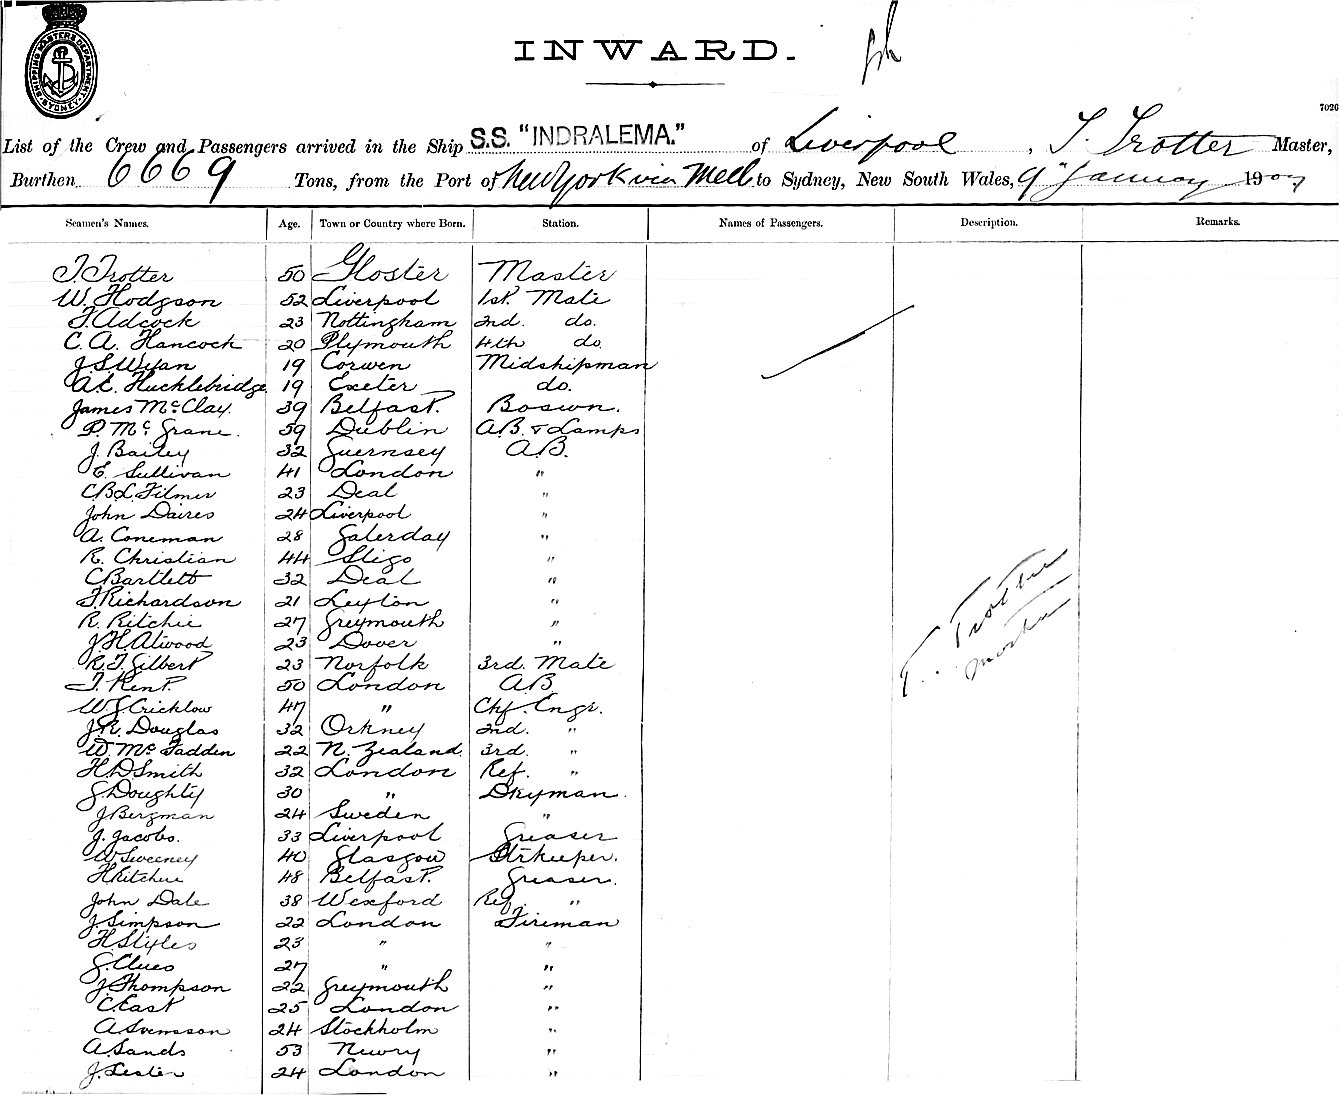 SHIPPING MASTERS DEPARTMENT SYDNEY
INWARD.
7026
List of the Crew and Passengers arrived in the Ship S.S. "INDRALEMA." of Liverpool, T. Trotter Master,
Burthen 6669 Tons, from the Port of New York via Melb to Sydney, New South Wales, 9" January 1907
Seamen's Names. Age. Town or Country where Born. Station. Names of Passengers. Description. Remarks.
T. Trotter 50 Gloster Master
W. Hodgson 52 Liverpool 1st. Mate
F. Adcock 23 Nottingham 2nd. do.
C. A. Hancock 20 Plymouth 4th do.
J. S. Wynn 19 Corwen Midshipman
A. E. Hucklebridge 19 Exeter do.
James McClay. 39 Belfast. Boswn.
P. McGrane. 59 Dublin A.B. & Lamps
J. Bailey 32 Guernsey A.B.
E. Sullivan 41 London "
C.B.L. Filmer 23 Deal "
John Daires 24 Liverpool "
A. Coneman 28 Galerday "
R. Christian 44 Sligo "
C Bartlett 32 Deal "
F. Richardson 21 Leyton "
R. Ritchie 27 Greymouth "
J H Atwood 23 Dover "
R. T. Gilbert 23 Norfolk 3rd. Mate
T. Kent. 50 London A.B.
W J Cricklow 47 " Chf. Engr.
J. R. Douglas 32 Orkney 2nd. "
W. McFadden 22 N. Zealand 3rd. "
H D Smith 32 London Ref. "
G. Doughty 30 " Dkyman.
J Bergman 24 Sweden "
J. Jacobs. 33 Liverpool Greaser
W Sweeney 40 Glasgow Strkeeper.
H Ritchie 48 Belfast. Greaser.
John Dale 38 Wexford Ref. "
J. Simpson 22 London Fireman
H. Styles 23 " "
G. Clues 27 " "
J. Thompson 22 Greymouth "
C. East 25 London "
A. Svensson 24 Stockholm "
A. Sands 53 Newry "
J. Lester 24 London "
T. Trotter
Master